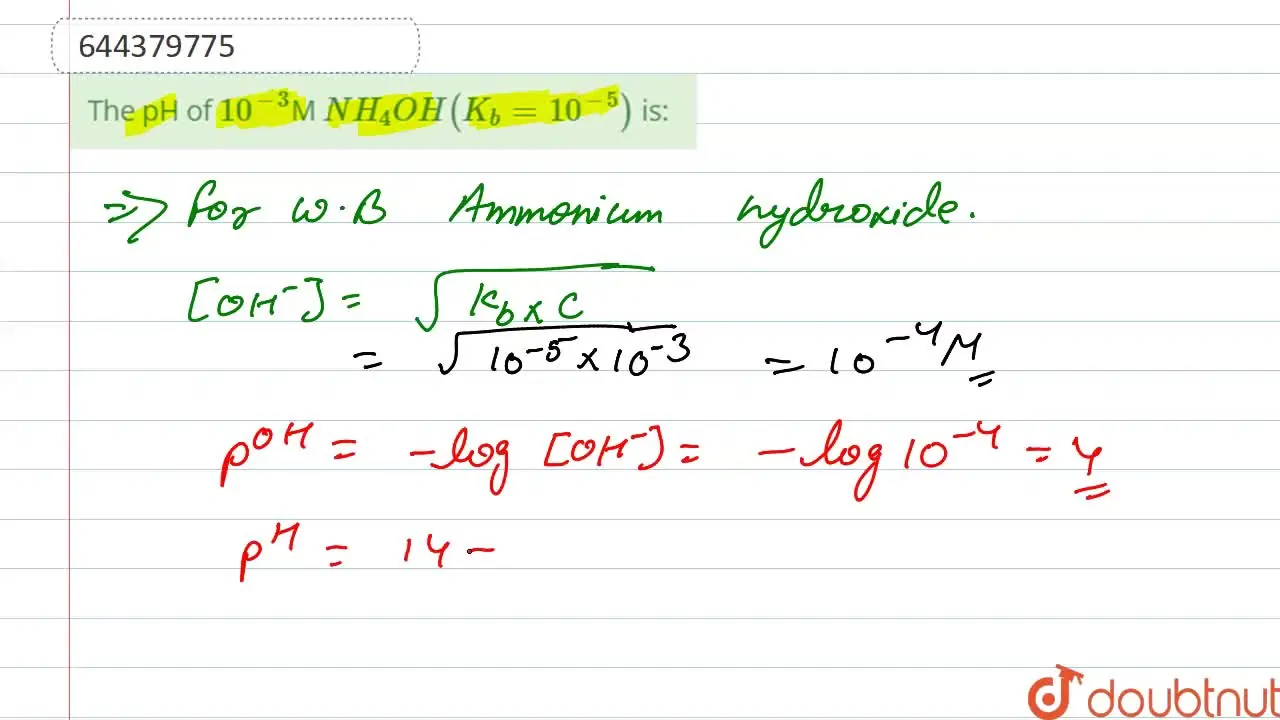 644379775
The pH of 10⁻³M NH₄OH(K_b = 10⁻⁵) is:
⇒ For W.B Ammonium hydroxide.
[OH⁻] = √(K_b x C)
= √(10⁻⁵ x 10⁻³) = 10⁻⁴ M
p^OH = -log [OH⁻] = -log 10⁻⁴ = 4
p^H = 14 -
doubtnut